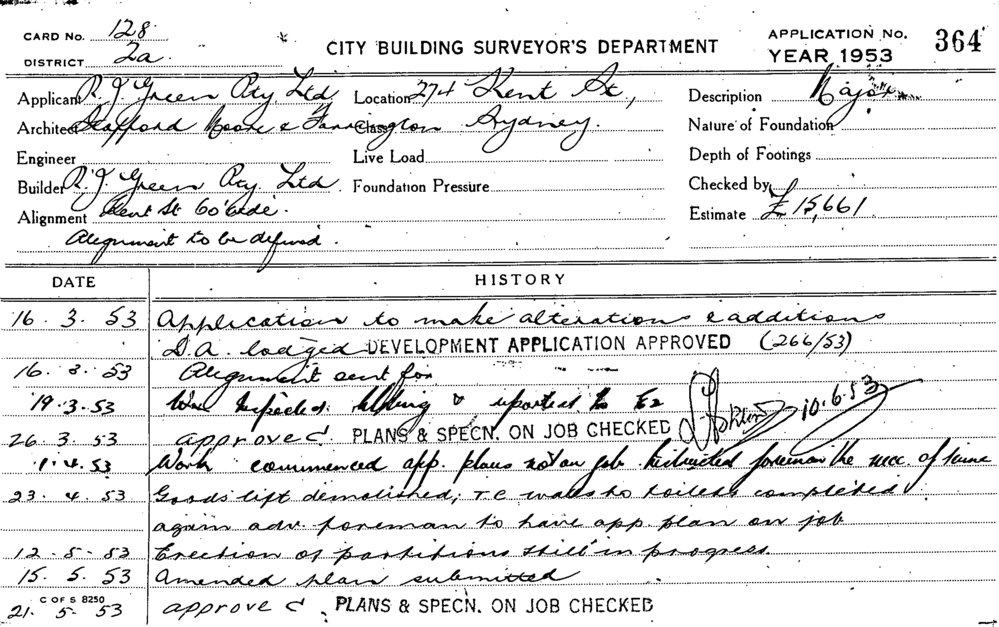 CARD No. 128.
DISTRICT 2a.
CITY BUILDING SURVEYOR'S DEPARTMENT
APPLICATION No. 364
YEAR 1953
Applicant R. J. Green Pty. Ltd Location 274 Kent St, Description Major
Architect Stafford Moore & Farrington Class Sydney. Nature of Foundation
Engineer Live Load Depth of Footings
Builder R. J. Green Pty. Ltd. Foundation Pressure Checked by
Alignment Kent St 60' wide. Estimate £15,661
Alignment to be defined.
DATE HISTORY
16. 3. 53 Application to make alterations & additions
D.A. lodged DEVELOPMENT APPLICATION APPROVED (266/53)
16. 3. 53 Alignment sent for
19.3.53 inspected & reported to
26. 3. 53 approved PLANS & SPECN. ON JOB CHECKED 10.6.53
1.4.53 Work commenced app. plans not on job. foreman the nec. of same
23. 4. 53 Goods lift demolished, T.C. walls to toilets completed
again adv. foreman to have app plan on job
12. 5. 53 Erection of partitions still in progress
15. 5. 53 Amended plan submitted
C OF S 8250
21. 5. 53 approved PLANS & SPECN. ON JOB CHECKED